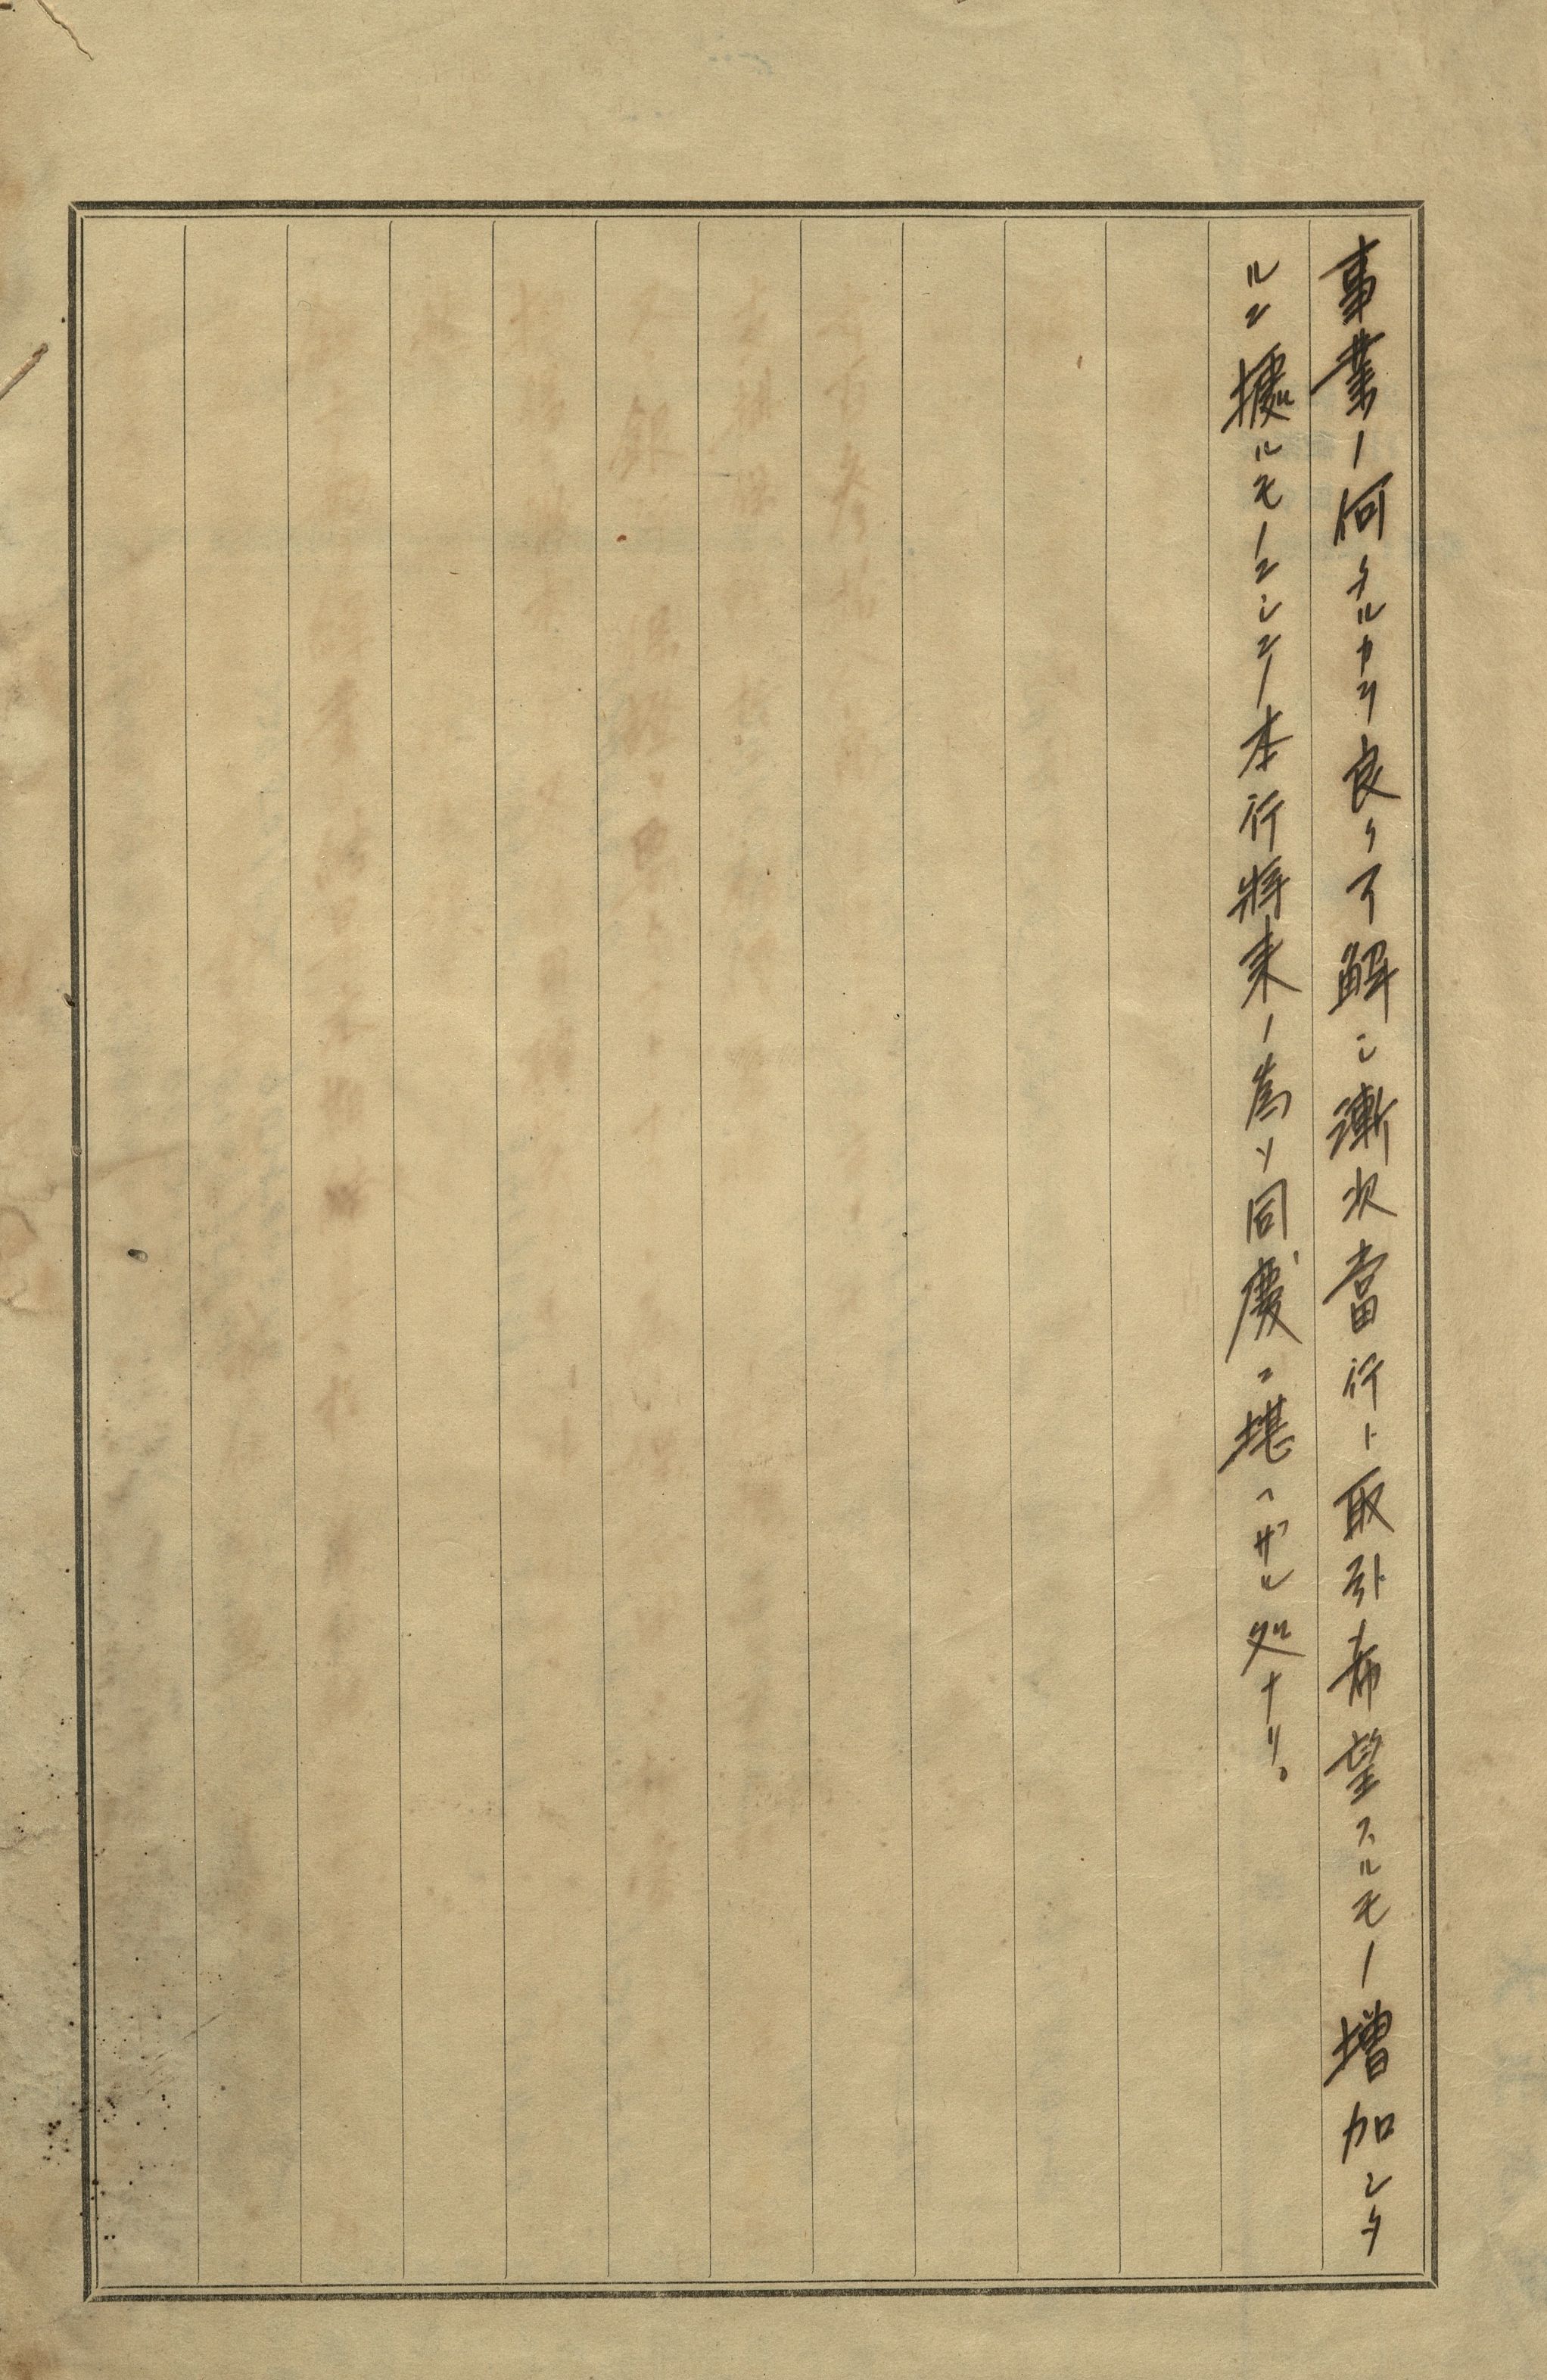 事業ノ何タルカヲ良ク了解シ漸次當行ト取引希望スルモノ増加シタ
ルニ據ルモノニシテ本行將来ノ為メ同慶ニ堪ヘザル処ナリ。